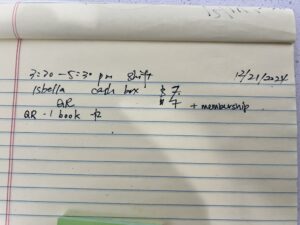 3:30 - 5:30 pm shift 12/21/2024
Isbella cash box $ 7.
QR $ 7 + membership
QR - 1 book $2